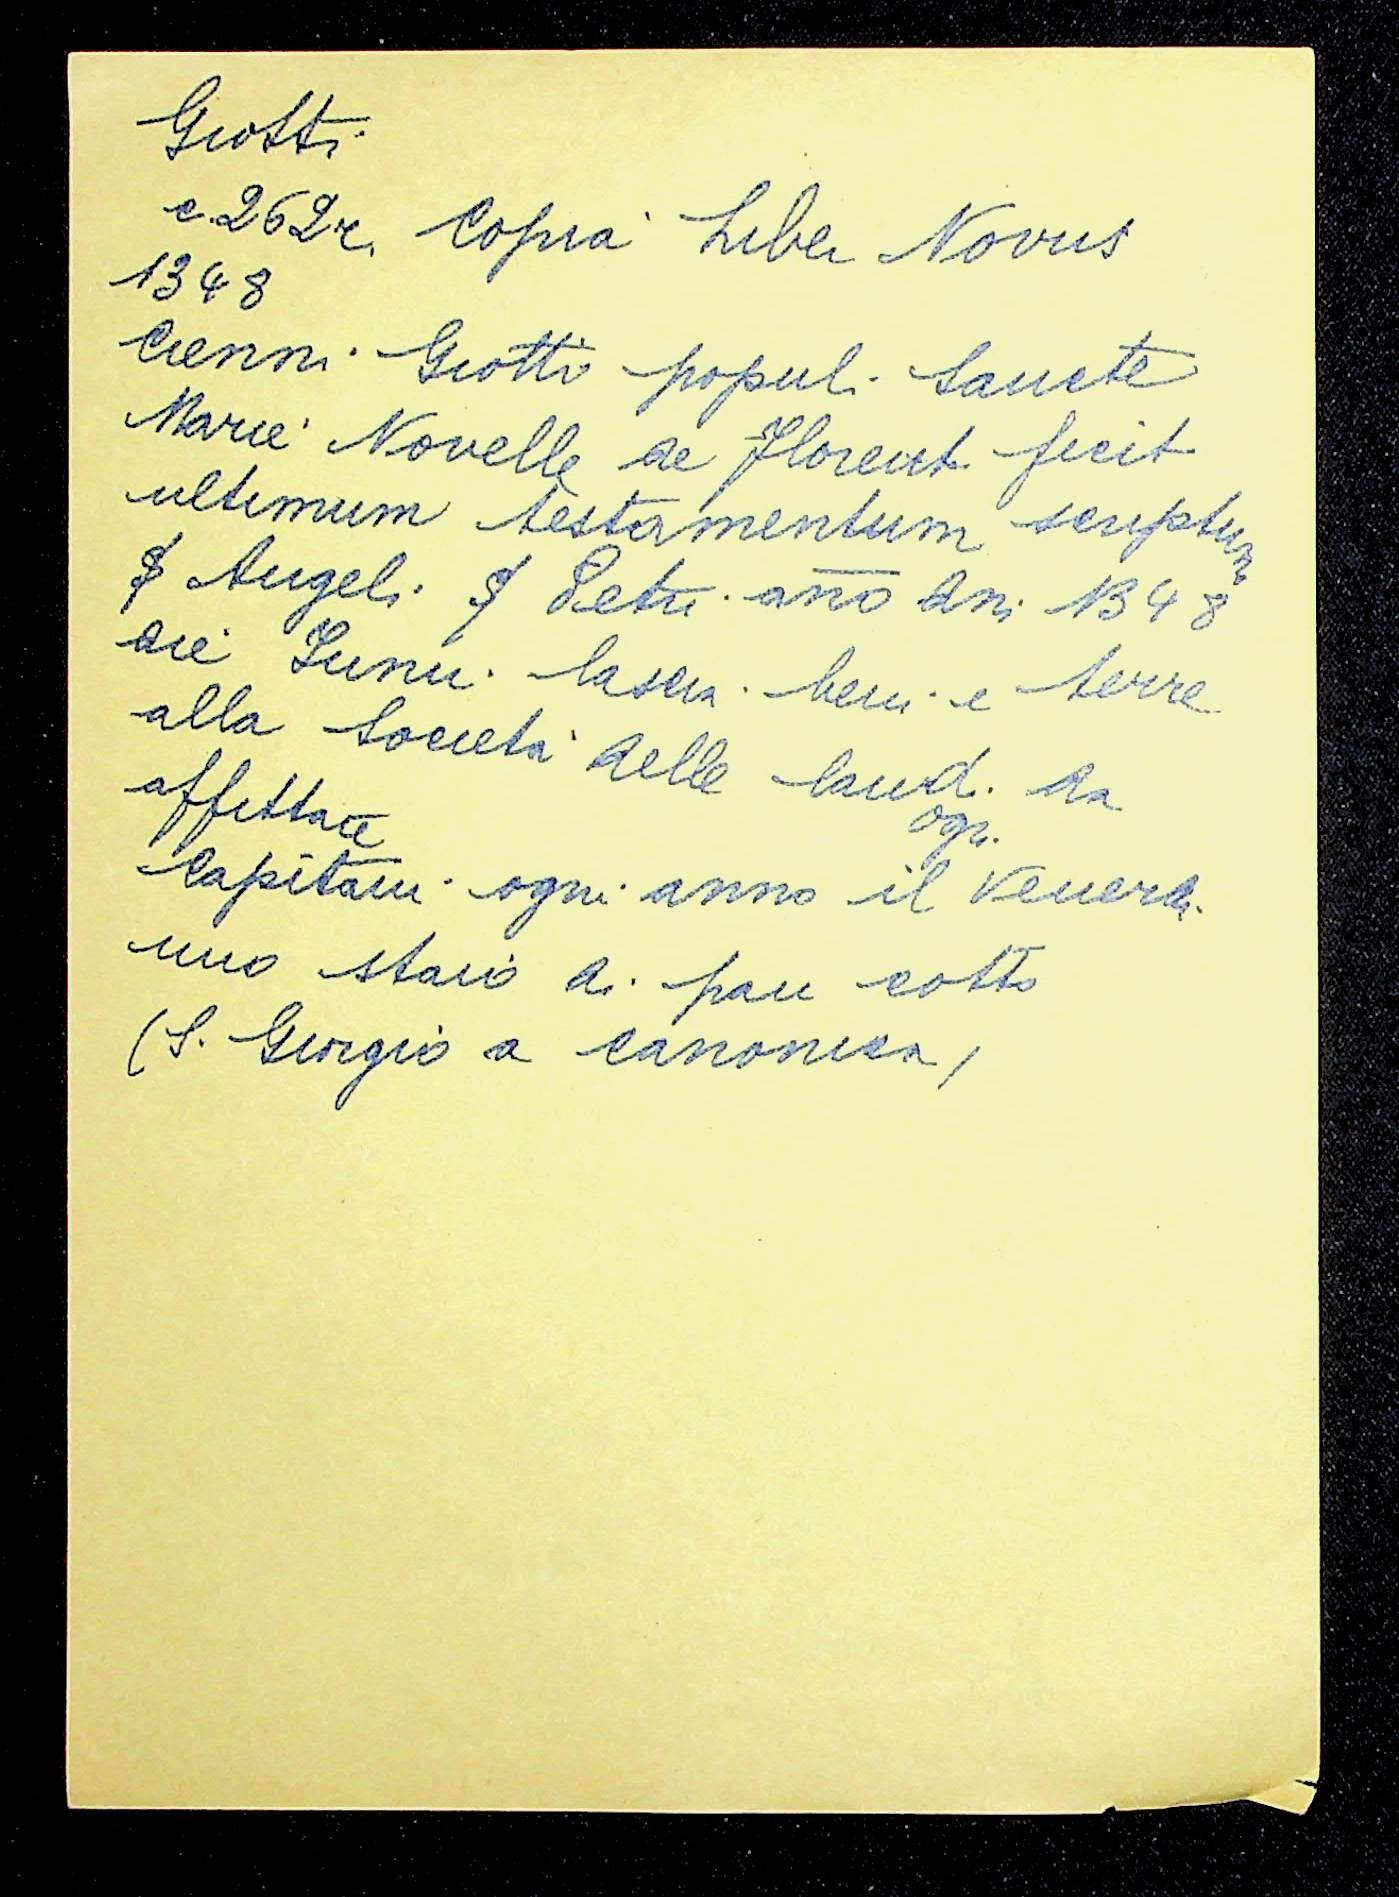 Giotti
c. 262r. Copia Liber Novus
1348
Cienni Giotti populi Sancte
Marie Novelle de Florent. fecit
ultimum testamentum scriptum
Angeli Petri anno dni 1348
die Iunii lascia beni e terre
alla Società delle laudi da
affittare
ogni
Capitani ogni anno il Venerdi
uno staio di pan cotto
(S. Giorgio a Canonica)